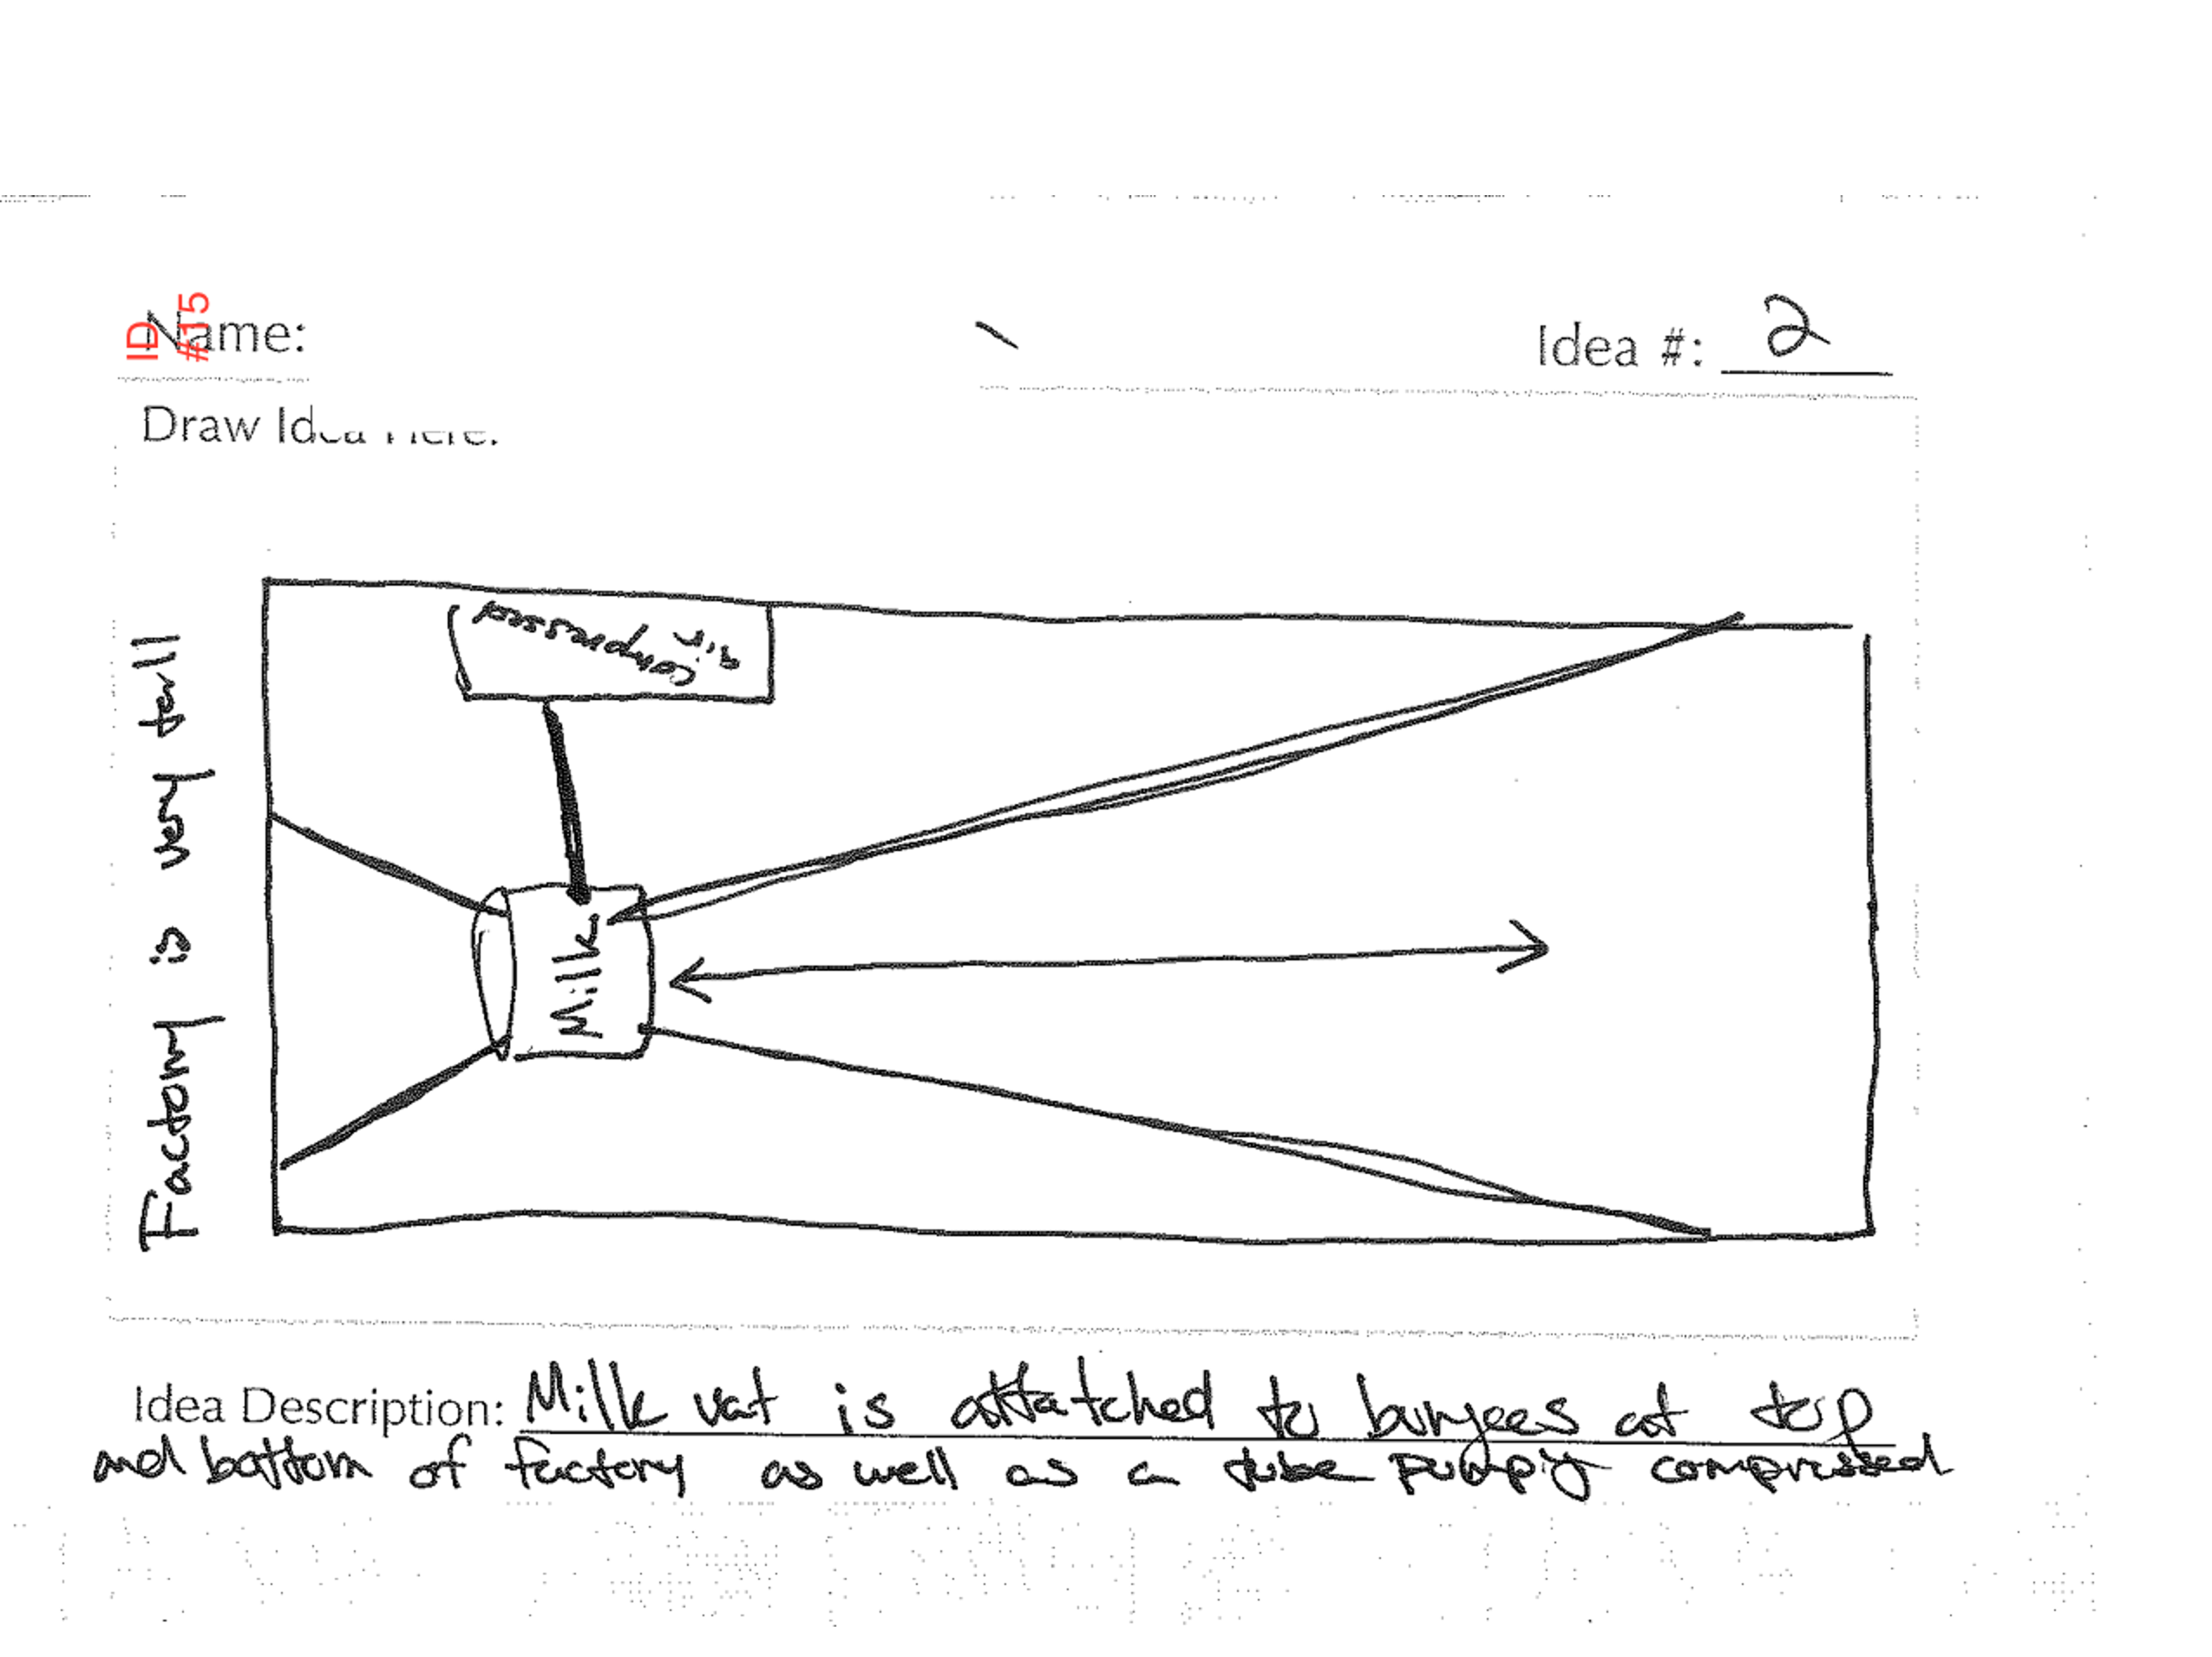 ID
#15
Name:
Idea #: 2
Draw Idea Here:
Factory is very tall
air
compressor
Milk
Idea Description: Milk vat is attatched to bunjees at top
and bottom of factory as well as a tube pumpig compressed